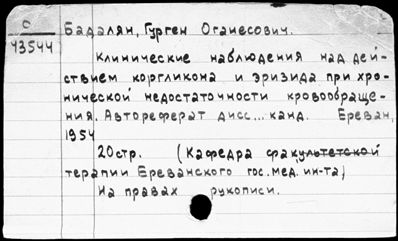 С
43544
Бадалян, Гурген Оганесович.
Клинические наблюдения над дей-
ствием коргликона и эризида при хро-
нической недостаточности кровообраще-
ния. Автореферат дисс... канд. Ереван,
1954
20стр. (Кафедра факультетской
терапии Ереванского гос. мед. ин-та)
На правах рукописи.